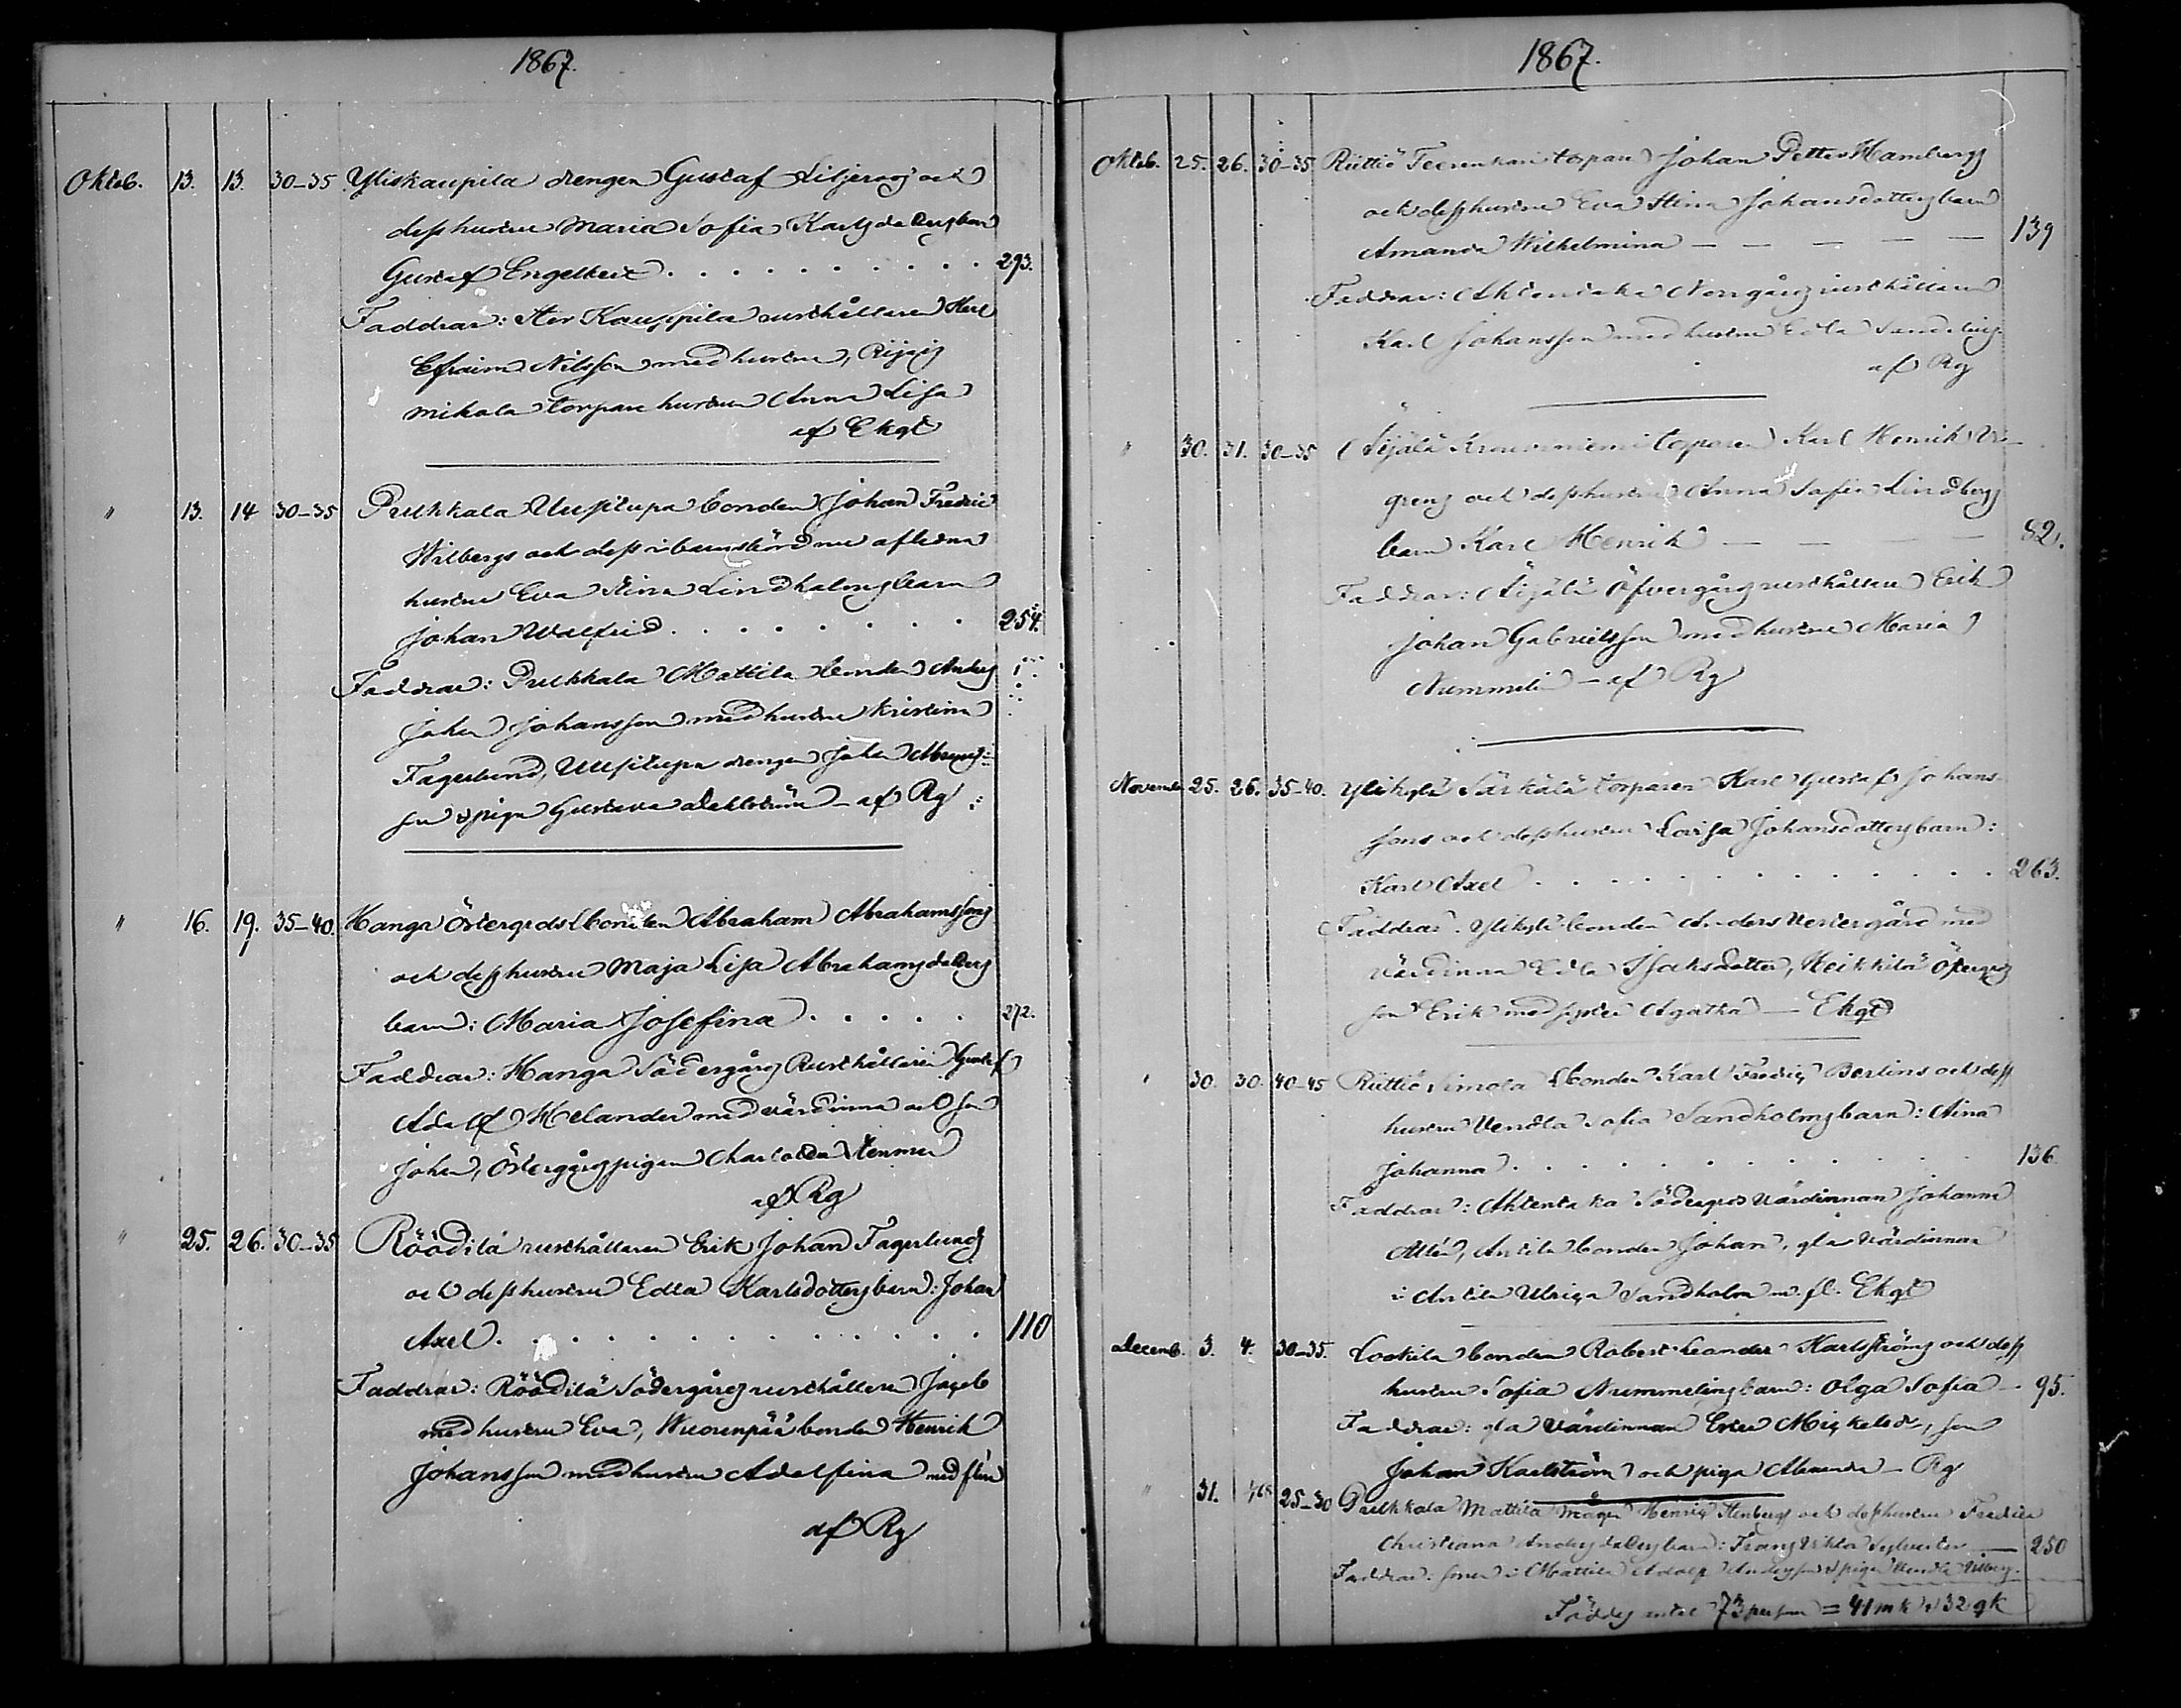 1867.
Oktob. 13. 13. 30-35 Yliskaupila drengen Gustaf och
dess hustru Maria Sofia Karlsdotters barn
Gustaf Engelbert . . . . . . . . . . . 293.
Faddrar: Kauppila rusthållaren Karl
Efraim Nilsson med hustru,
mikola torpare hustrun Anna Lisa
af Ekqt
" 13. 14 30-35 Pukkala Uusitupa bonden Johan Fredric
Wilbergs och dess i barnsbörd nu aflidna
hustru Eva Stina Lindholms barn
Johan Walfrid . . . . . . . . 254.
Faddrar: Pukkala Mattila bonden Anders
Johan Johansson med hustru Kristina
Fagerlund, Uusitupa drengen Johan
son & piga Gustava Dahlström - af Rg
" 16. 19. 35-40. Hanga Östergrds bonden Abraham Abrahamssons
och dess hustru Maja Lisa Abrahamsdotters
barn: Maria Josefina . . . . . 272.
Faddrar: Hanga Södergårds Rusthållaren Gustaf
Adolf Helander med värdinna och son
Johan, Östergårds pigan Charlotta
af Rg
" 25. 26. 30-35 Röödilä rusthållaren Erik Johan Fagerlunds
och dess hustru Edla Karlsdotters barn: Johan
Axel . . . . . . . . . . . . . 110
Faddrar: Röödilä Södergårds rusthållare Jakob
med hustru Eva, Wuorenpää bonden Henrik
Johansson med hustru Adolfina med flere
af Rg
1867.
Oktob. 25. 26. 30-35 Riittiö Teerenkari torpare Johan Petter Hambergs
och dess hustru Eva Stina Johansdotters barn
Amanda Wilhelmina — — — — — 139
Faddrar: Ahlentaka Norrgårds rusthållaren
Karl Johansson med hustru Edla
af Rg
" 30. 31. 30-35 Äijälä torparen Karl Henrik
grens och dess hustru Anna Sofia Lindbergs
barn Karl Henrik — — — — 82.
Faddrar: Äijälä Öfvergårds rusthållare Erik
Johan Gabrielsson med hustru Maria
Nummelin - af Rg
November 25. 26. 35-40. Ylikylä Särkälä torparen Karl Gustaf Johans-
sons och dess hustru Lovisa Johansdotters barn:
Karl Axel . . . . . . . . . . . . . 263.
Faddrar: Ylikylä bonden Anders Vestergård med
värdinna Edla Isaksdotter, Heikkilä
son Erik med syster Agatha — Ekqt
" 30. 30. 40-45 Riittiö Simola bonden Karl Fredriks Berlins och dess
hustru Vendla Sofia Sandholms barn: Aina
Johanna . . . . . . . . . . 136.
Faddrar: Ahlentaka Södergrds värdinnan Johanna
Allén, Antila bonden Johan, gla värdinnan
i Antila Ulrika Sandholm m. fl. Ekqt
Decemb. 3. 4. 30-35. Laukila bonden Robert Leander Karlströms och dess
hustru Sofia Nummelins barn: Olga Sofia - 95.
Faddrar: gla värdinnan Mickelsdr, son
Johan Karlström och piga Amanda - Rg
" 31. 25-30 Pukkala Mattila mågen Henrik Stenbergs och dess hustru Fredrica
Christiana Andersdotters barn: Frans Viktor Sylvester — 250
Faddrar: sonen i Mattila Adolf Andersson & piga Vendla Vilberg.
Föddes antal 73 person = 41 mk & 32 qk